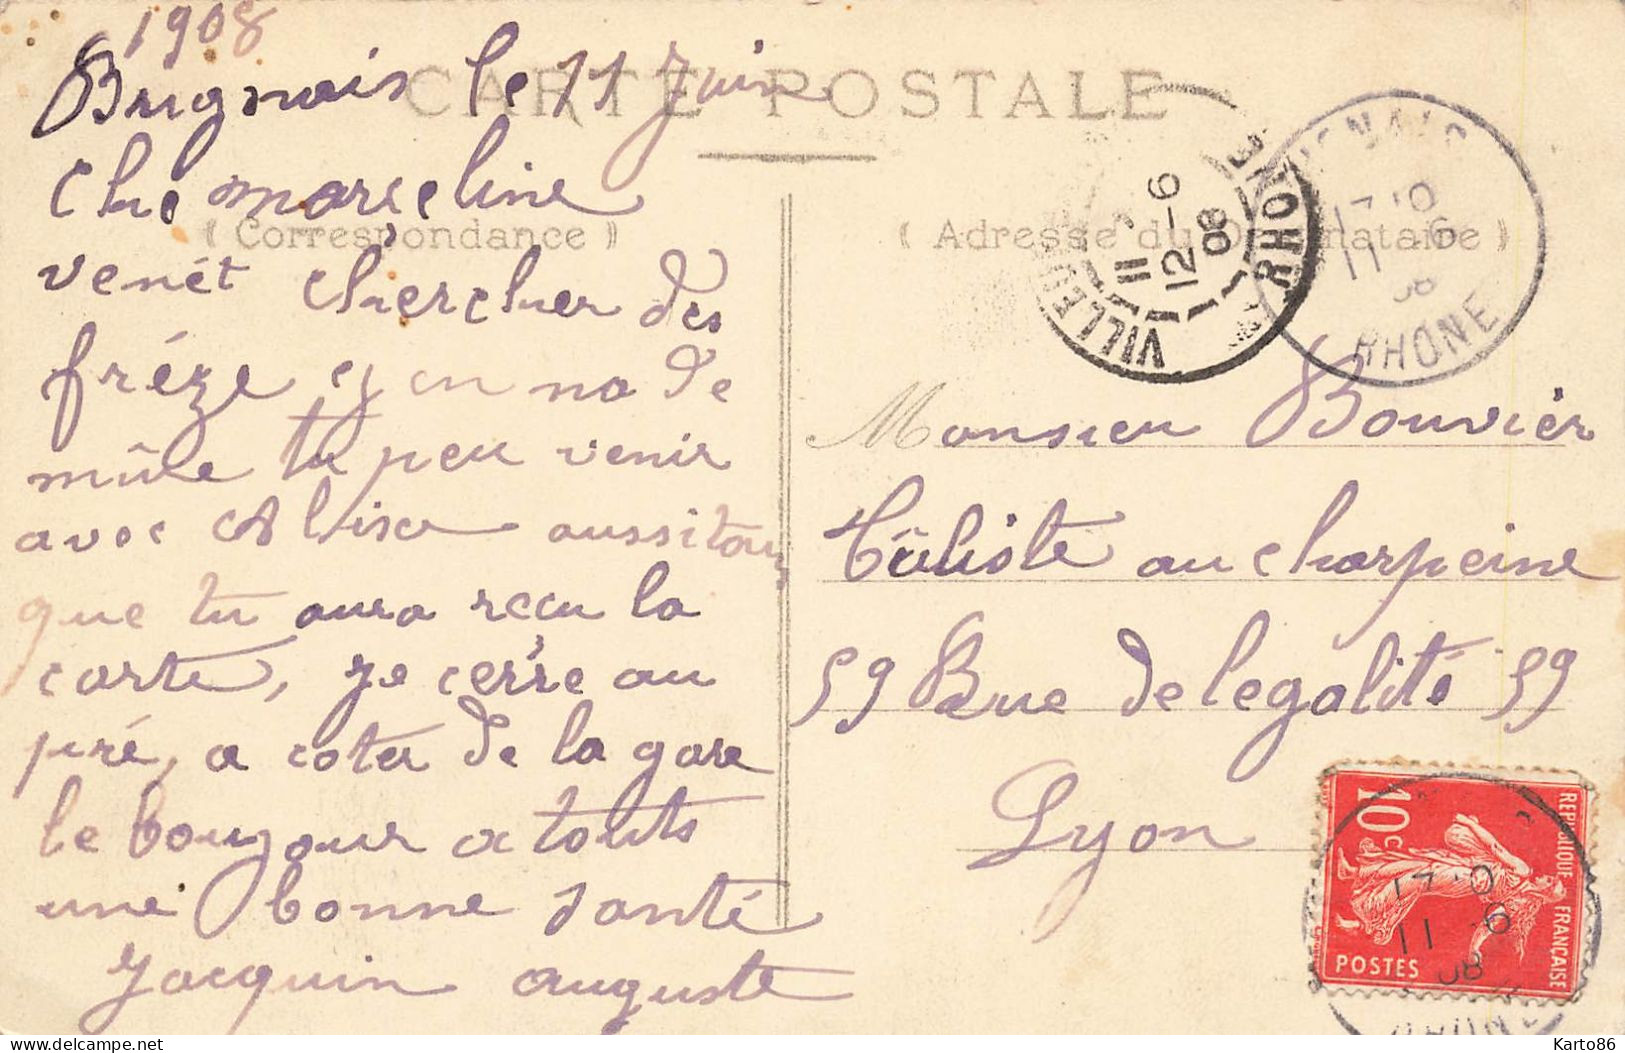 1908
CARTE POSTALE
Brignais le 11 Juin
Cher marceline
( Correspondance )
venét chercher des
fréze ej en na de
mûre tu peu venir
avec Alisa aussitau
que tu aura recu la
carte, je cerre au
pré, a coter de la gare
le boujour a touts
une bonne santé
Jacquin auguste
( Adresse du Destinataire )
11
12-6
08
VILLEU
RHONE
17 0
11 6
08
RHONE
Monsieu Bouvier
Tûliste au charpeine
59 Rue de legalité 59
Lyon
REPUBLIQUE FRANÇAISE
10c
POSTES
17 0
11 6
08
RHONE
delcampe.net
Karto86